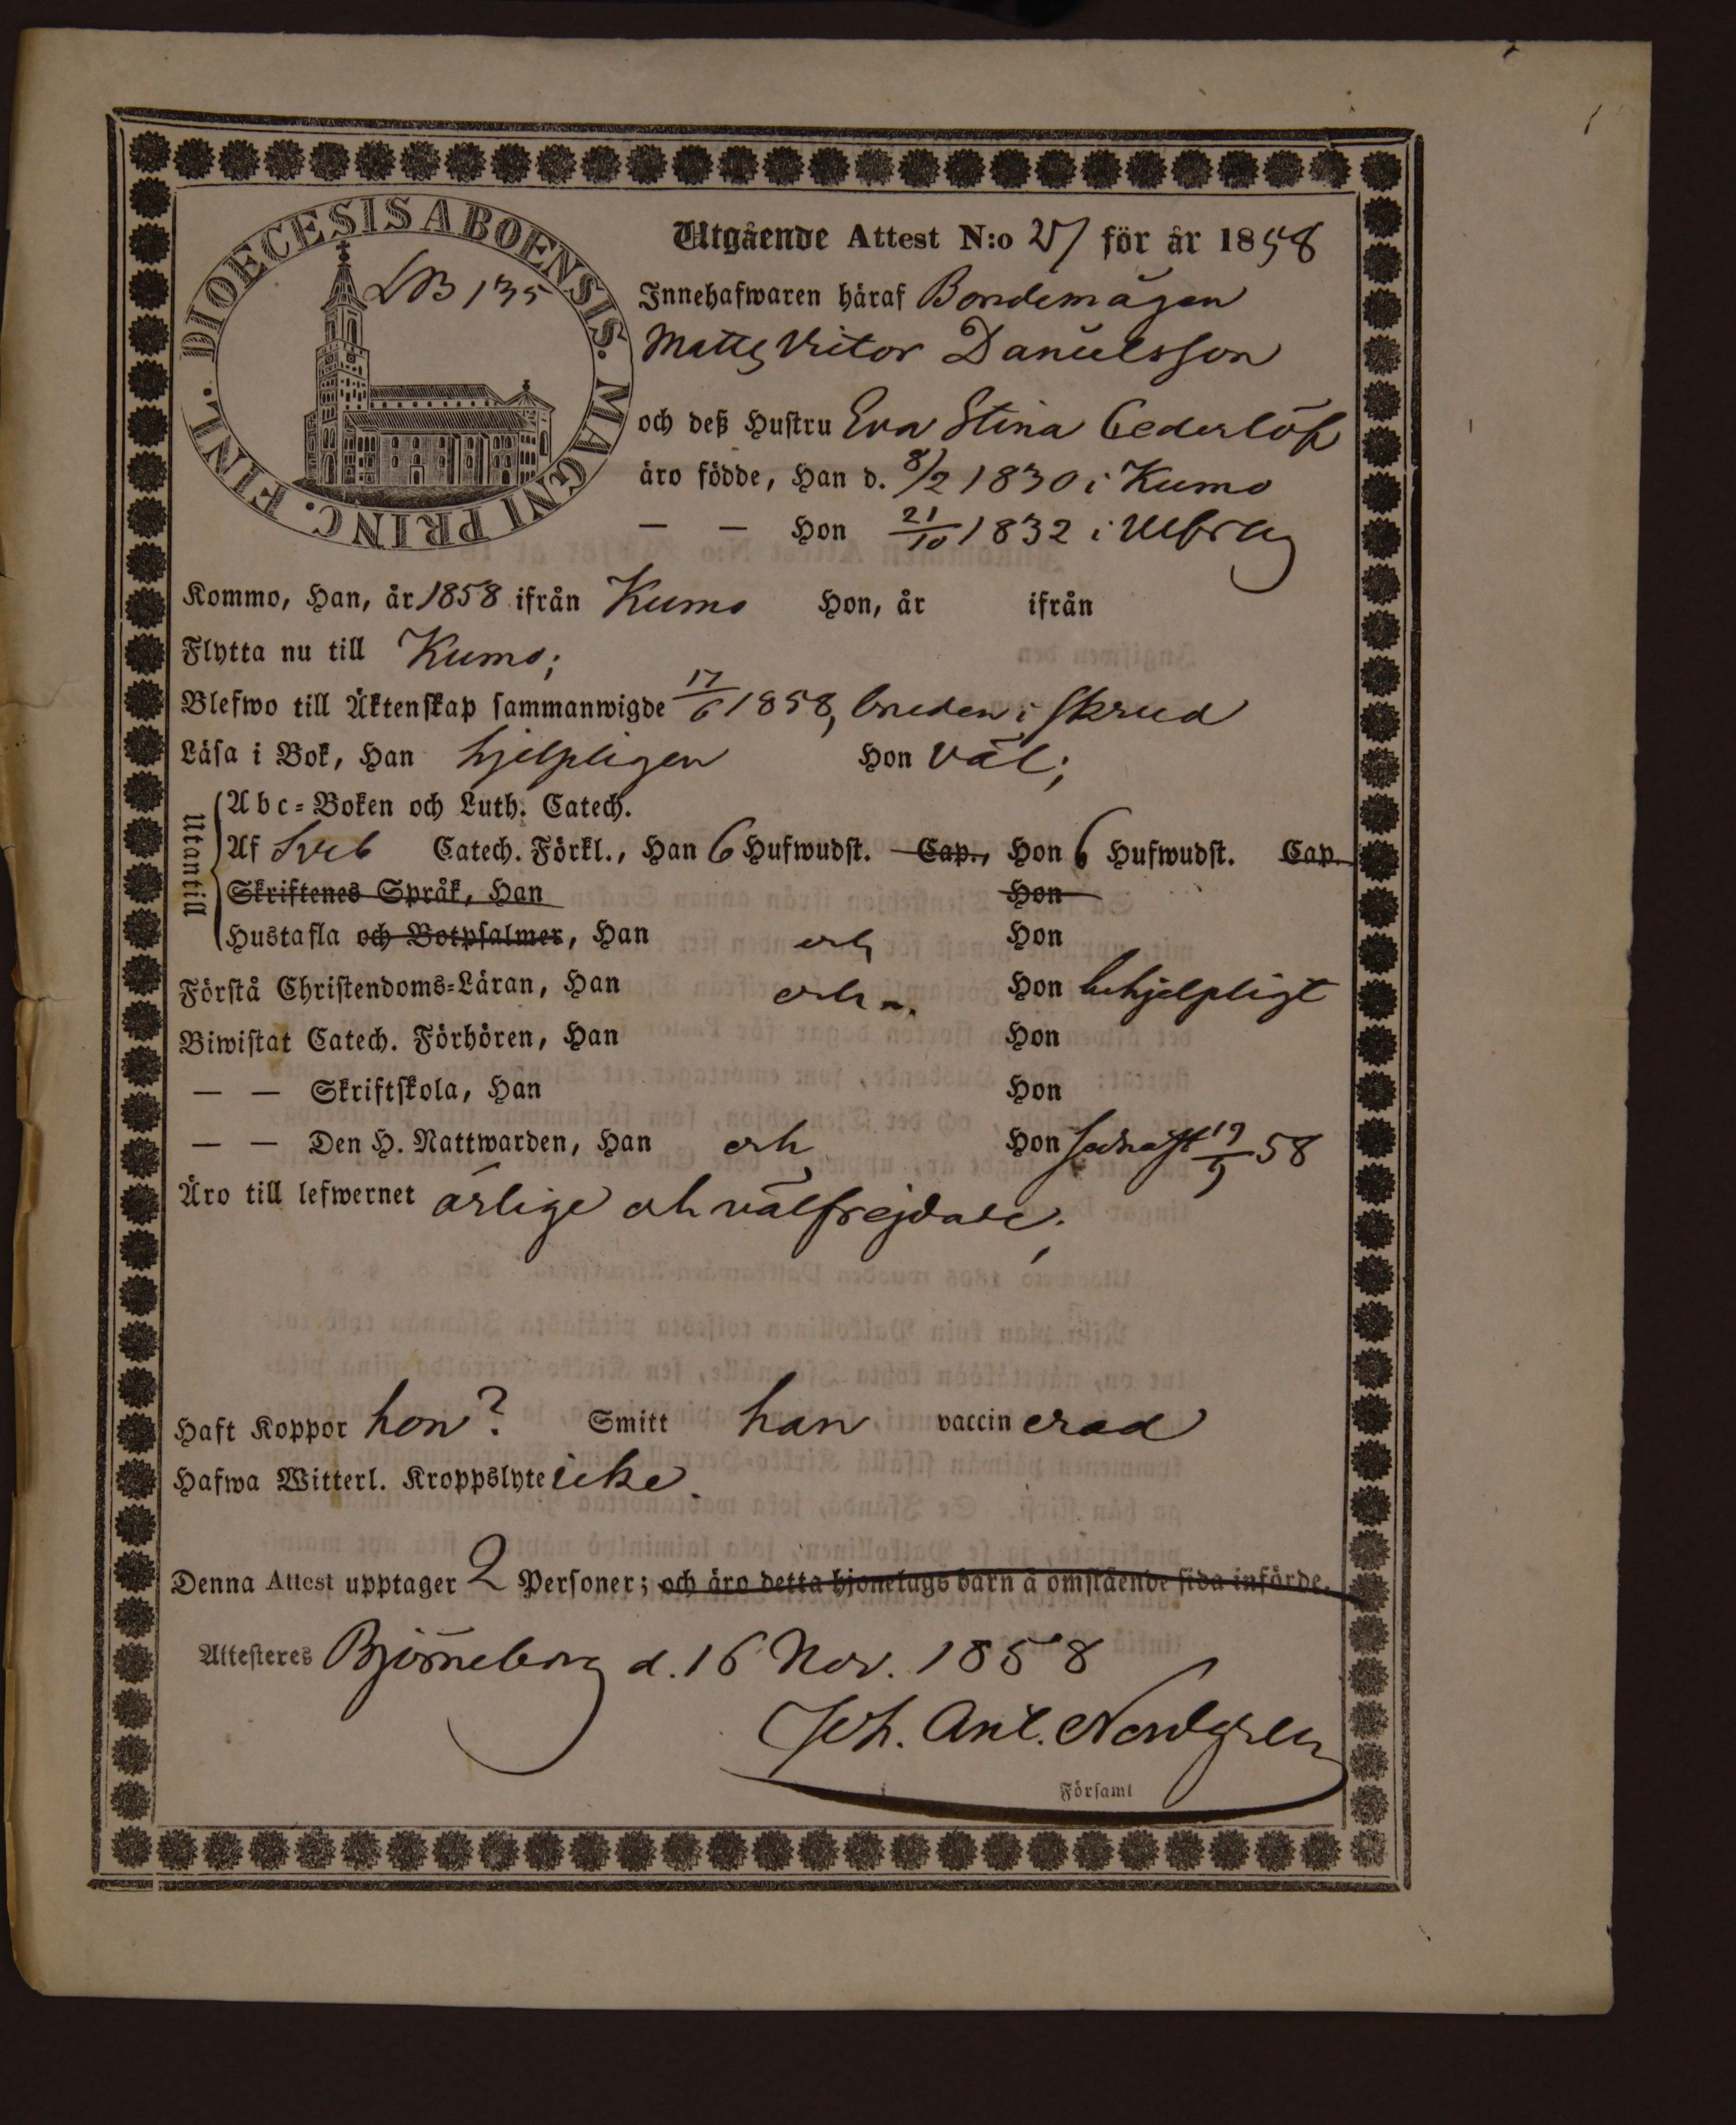 DIOECESIS ABOENSIS. MAGNI PRINC. FINL.
LB 135
Utgående Attest N:o 27 för år 1858
Innehafwaren häraf Bondemågen
Matts Victor Danielsson
och deß Hustru Eva Stina Cederlöf
äro födde, Han d. 8/2 1830 i Kumo
— — Hon 21/10 1832 i Ulfsby
Kommo, Han, år 1858 ifrån Kumo Hon, år ifrån
Flytta nu till Kumo;
Blefwo till Äktenskap sammanwigde 17/6 1858, bruden i skrud
Läsa i Bok, Han hjelpligen Hon väl;
Utantill
Abc-Boken och Luth. Catech.
Af Sveb Catech. Förkl., Han 6 Hufwudst. Cap., Hon 6 Hufwudst. Cap.
Skriftenes Språk, Han Hon
Hustafla och Botpsalmer, Han och Hon
Förstå Christendoms-Läran, Han och Hon behjelpligt
Biwistat Catech. Förhören, Han Hon
— — Skriftskola, Han Hon
— — Den H. Nattwarden, Han och Hon sednast 19/9 58
Äro till lefwernet ärlige och välfrejdade;
Haft Koppor hon? Smitt han vaccinerad
Hafwa Witterl. Kroppslyte icke.
Denna Attest upptager 2 Personer; och äro detta hjonelags barn å omstående sida införde.
Attesteres Björneborg d. 16 Nov. 1858
Joh. Ant. Nordgren
i Församl